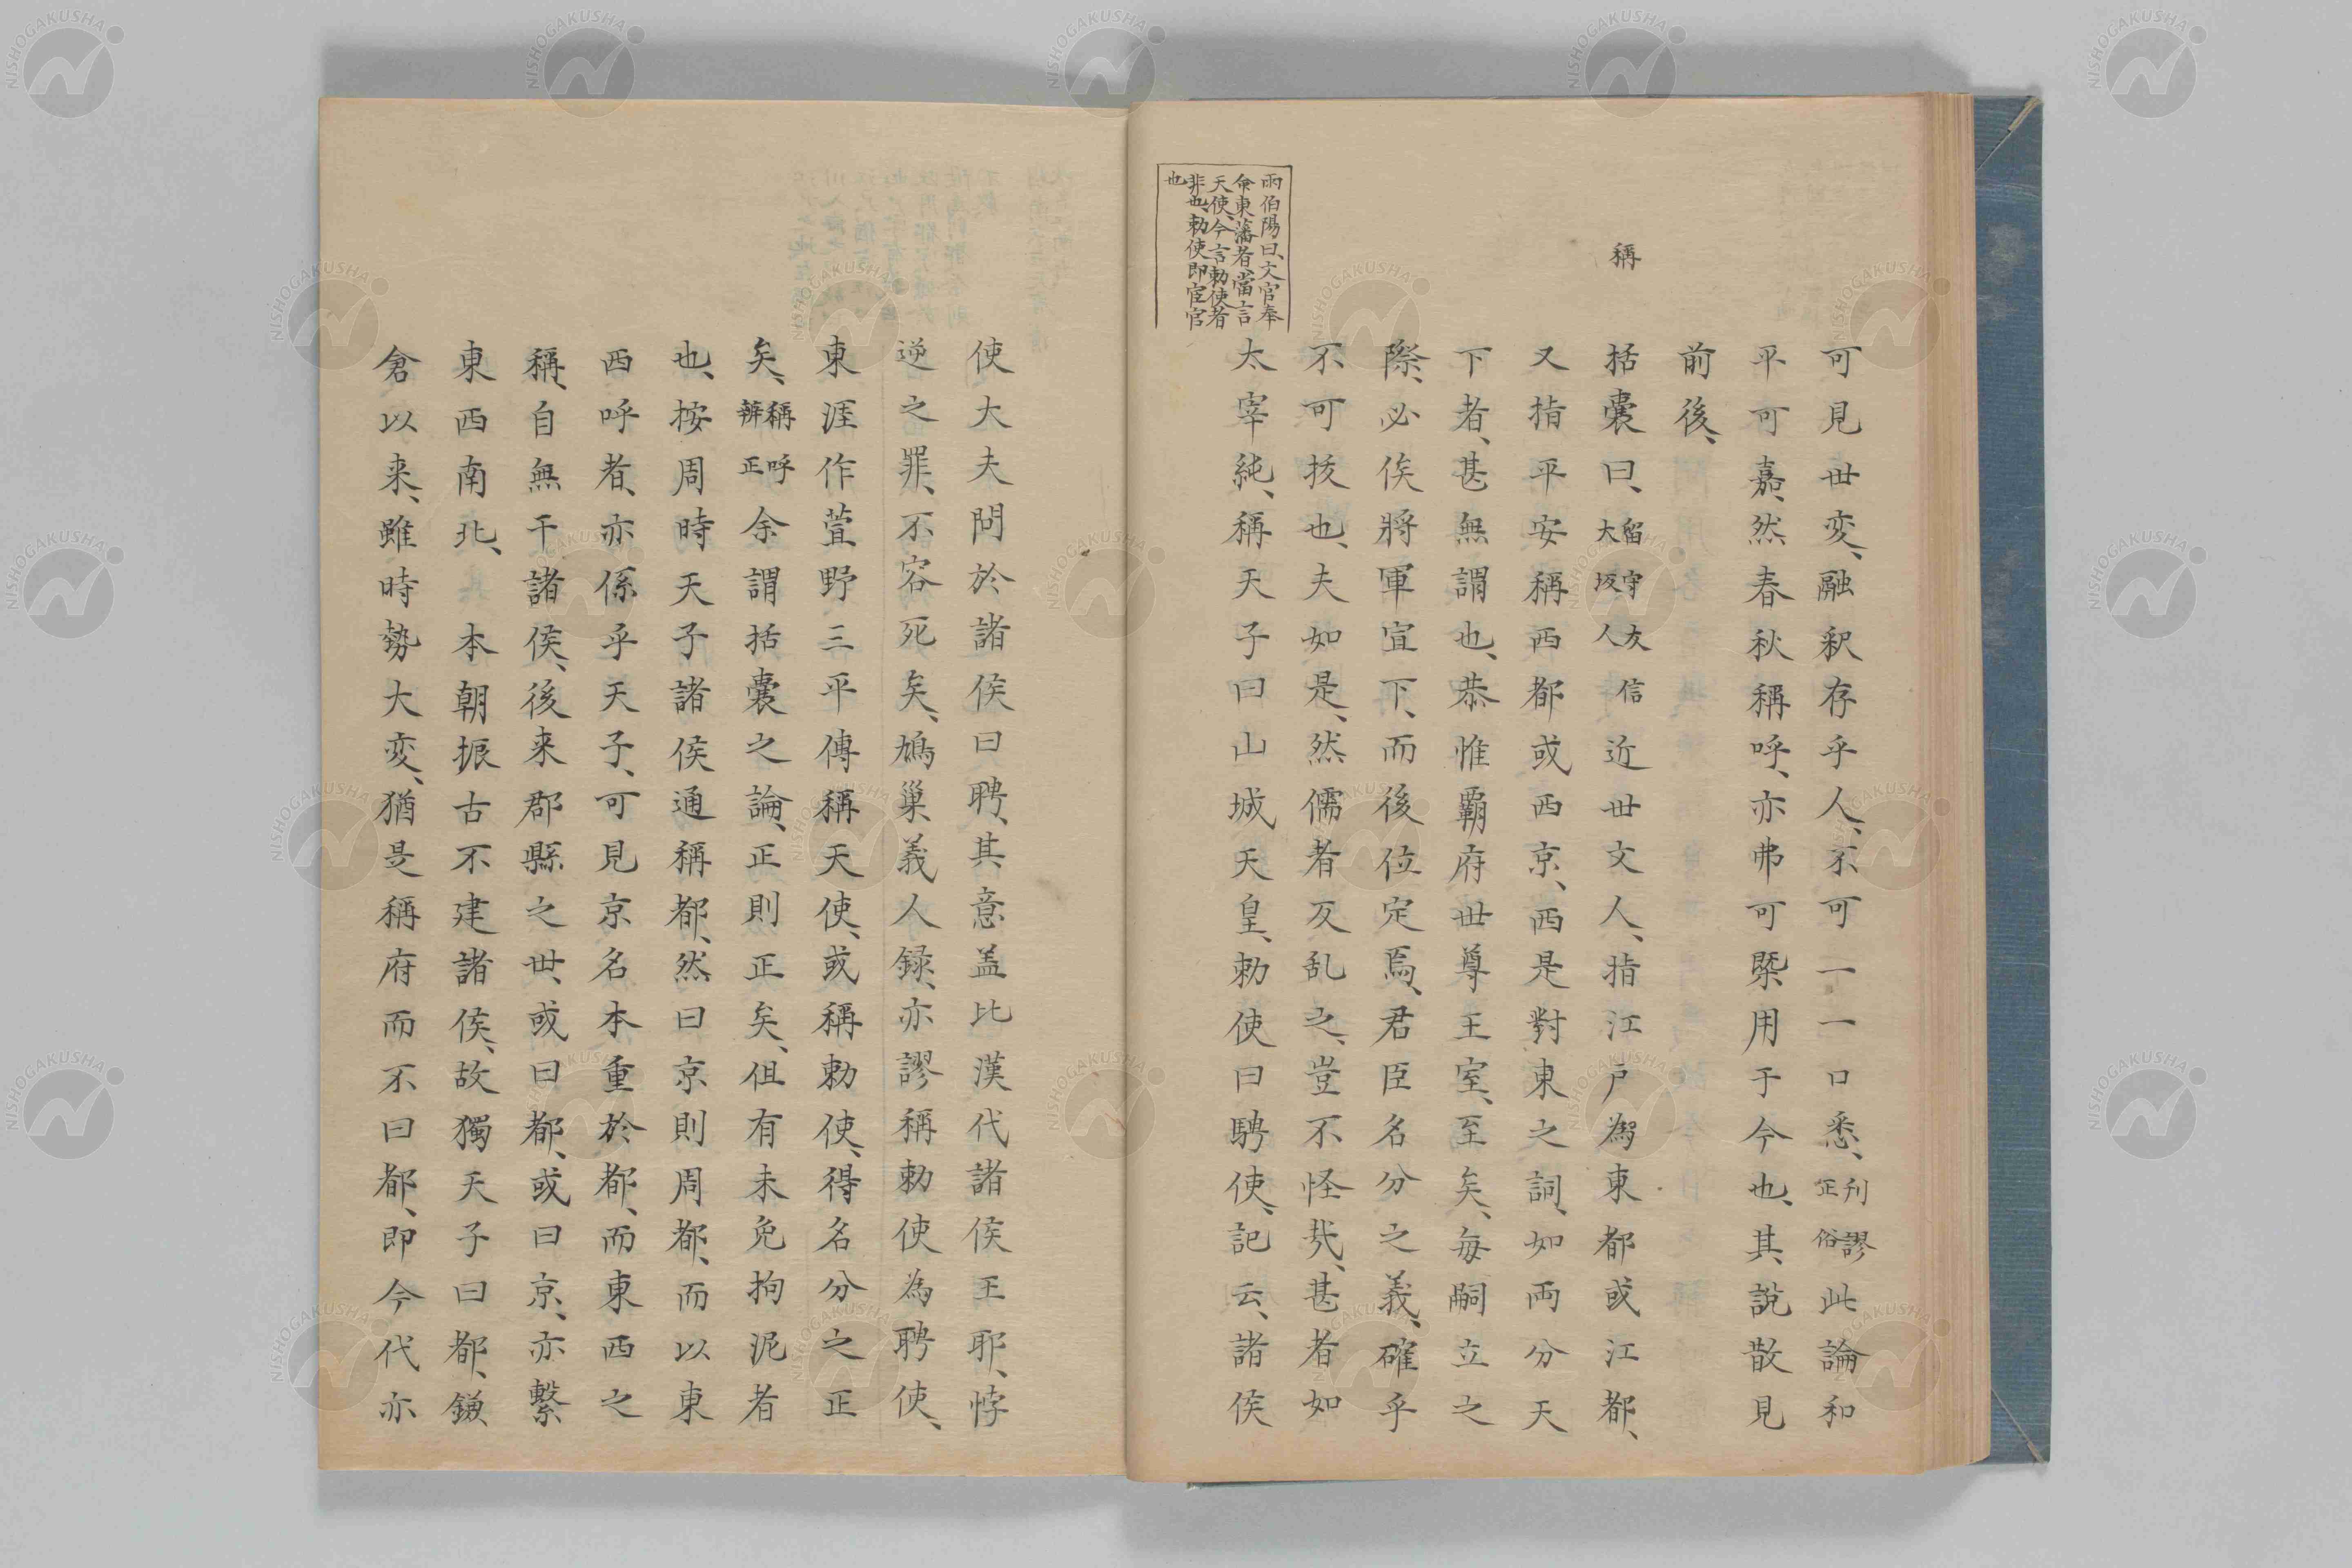 可見世変、融釈存乎人、不可一一口悉、刊謬正俗此論和
平可嘉、然春秋稱呼、亦弗可槩用于今也、其説散見
前後、
稱
括嚢曰、留守友信大坂人近世文人、指江戸為東都或江都、
又指平安稱西都或西京、西是對東之詞、如両分天
下者、甚無謂也、恭惟覇府世尊王室、至矣、毎嗣立之
際、必俟將軍宣下、而後位定焉、君臣名分之義、確乎
不可抜也、夫如是、然儒者反乱之、豈不怪哉、甚者如
太宰純、稱天子曰山城天皇、勅使曰聘使、記云、諸侯
雨伯陽曰、文官奉
命東藩者、當言
天使、今言勅使者
非也、勅使即宦官
也
使大夫問於諸侯曰聘、其意盖比漢代諸侯王耶、悖
逆之罪、不容死矣、鳩巣義人録、亦謬稱勅使為聘使、
東涯作萱野三平傳稱天使、或稱勅使、得名分之正
矣、稱呼辨正余謂括嚢之論、正則正矣、但有未免拘泥者
也、按周時天子諸侯通稱都、然曰京則周都、而以東
西呼者、亦係乎天子、可見京名本重於都、而東西之
稱、自無干諸侯、後来郡縣之世、或曰都、或曰京、亦繋
東西南北、本朝振古不建諸侯、故獨天子曰都、鎌
倉以来、雖時勢大変、猶是稱府而不曰都、即今代亦
NISHOGAKUSHA